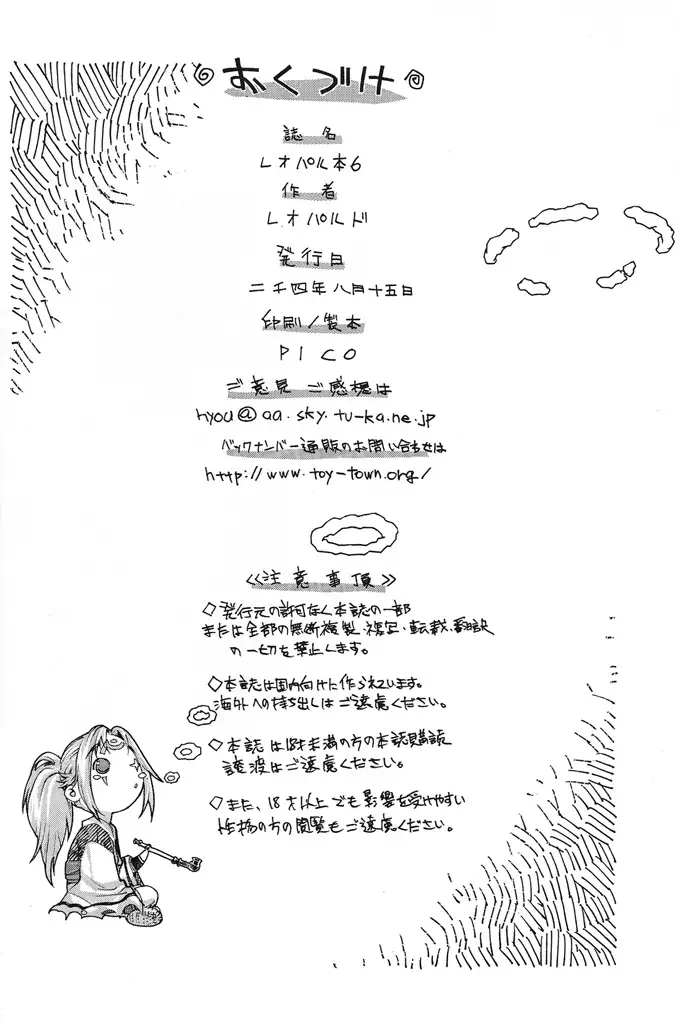 おくづけ
誌名
レオパル本6
作者
レオパルド
発行日
二千四年八月十五日
印刷/製本
PICO
ご意見 ご感想は
hyou@aa.sky.tu-ka.ne.jp
バックナンバー通販のお問い合わせは
http://www.toy-town.org/
《注意事項》
◇発行元の許可なく本誌の一部
または全部の無断複製、複写、転載、翻訳
の一切を禁止します。
◇本誌は国内向けに作られています。
海外への持ち出しはご遠慮ください。
◇本誌は18才未満の方の本誌購読
譲渡はご遠慮ください。
◇また、18才以上でも影響を受けやすい
性格の方の閲覧もご遠慮ください。